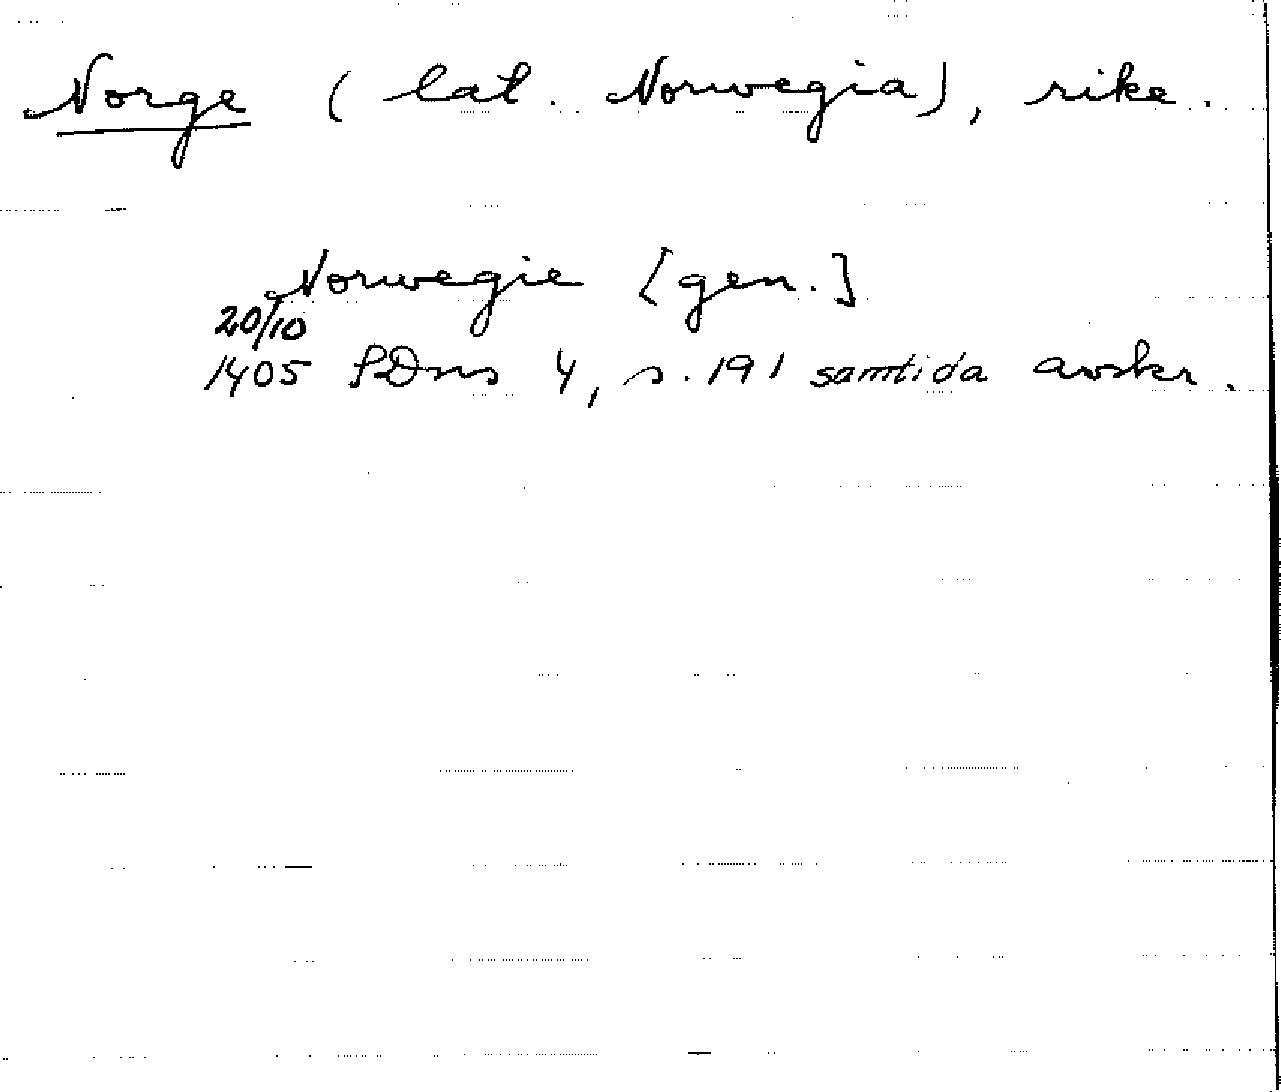 Norge (lat. Norwegia), rike.
Norwegie [gen.]
20/10
1405 SDns 4, s. 191 samtida avskr.